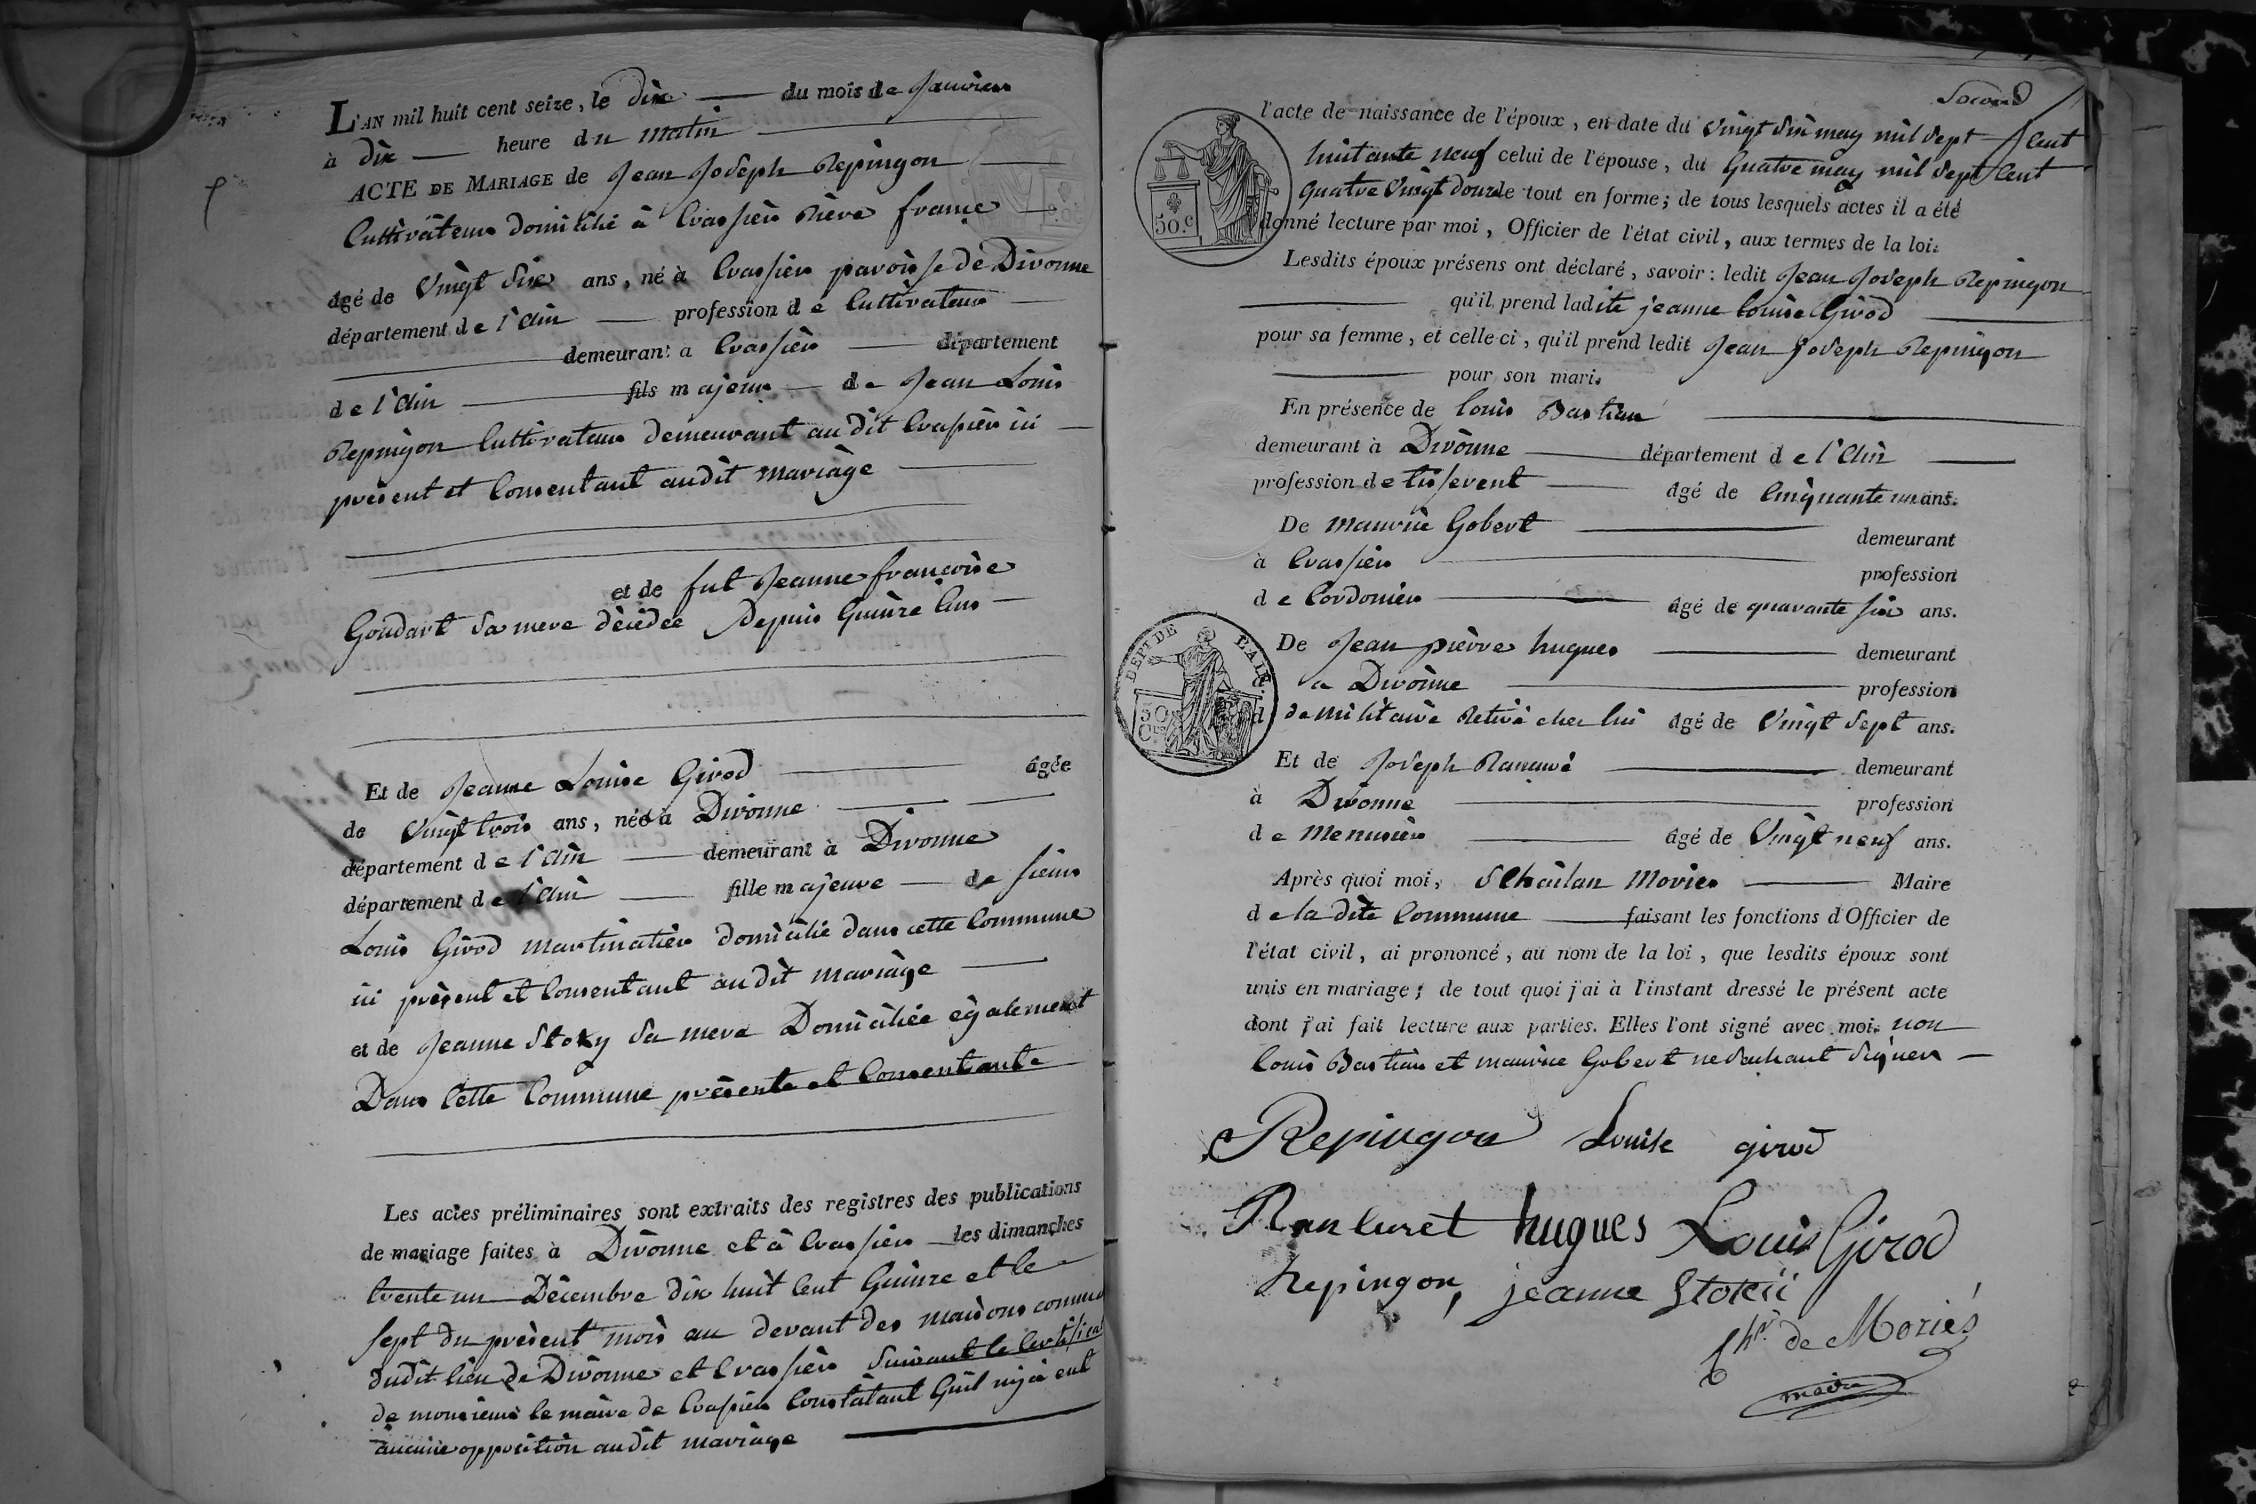 L'AN mil huit cent seize, le dix du mois de Janvier
à dix heure du matin
ACTE DE MARIAGE de Jean Joseph Repingon
Cultivateur domicilié à Crassier rière france
âgé de Vingt six ans, né à Crassier paroisse de Divonne
département de l'Ain profession de Cultivateur
demeurant a Crassier département
de l'Ain fils majeur de Jean Louis
Repingon Cultivateur demeurant au dit Crassier ici
présent et Consentant audit mariage
et de fut Jeanne françoise
Goudart sa mere décédée Depuis Quinze Ans
Et de Jeanne Louise Girod âgée
de Vingt trois ans, née à Divonne
département de l'Ain demeurant à Divonne
département de l'Ain fille majeure de sieur
Louis Girod martinatier domicilié dans cette Commune
ici présent et Consentant audit mariage
et de Jeanne Stoky sa mere Domiciliée également
Dans Cette Commune présente et Consentante
Les actes préliminaires sont extraits des registres des publications
de mariage faites à Divonne et à Crassier les dimanches
trente un Décembre dix huit Cent Quinze et le
sept du présent mois au devant des maisons commu
dudit lieu de Divonne et Crassier Suivant le Certificat
de monsieur le maire de Crassier Constatant Quil nyà eut
aucune opposition audit mariage
Second
l'acte de naissance de l'époux, en date du Vingt six may mil sept Cent
huitante neuf celui de l'épouse, du Quatre may mil sept Cent
quatre Vingt douze le tout en forme; de tous lesquels actes il a été
donné lecture par moi, Officier de l'état civil, aux termes de la loi.
50.c
Lesdits époux présens ont déclaré, savoir: ledit Jean Joseph Repingon
qu'il prend ladite jeanne louise Girod
pour sa femme, et celle ci, qu'il prend ledit Jean Joseph Repingon
pour son mari.
En présence de Louis Bastian
demeurant à Divonne département de l'Ain
profession de tisserent âgé de Cinquante un ans.
De maurice Gobert demeurant
à Crassier profession
de Cordonier âgé de quarante six ans.
DEPT DE L'AIN
50 C.
De Jean pierre hugues demeurant
à a Divonne profession
d de militaire Retiré chez lui âgé de Vingt sept ans.
Et de Joseph demeurant
à Divonne profession
de menusier âgé de Vingt neuf ans.
Après quoi moi, Morier Maire
de la dite Commune faisant les fonctions d'Officier de
l'état civil, ai prononcé, au nom de la loi, que lesdits époux sont
unis en mariage; de tout quoi j'ai à l'instant dressé le présent acte
dont j'ai fait lecture aux parties. Elles l'ont signé avec moi. non
Louis Bastian et maurice Gobert ne sachant signer
Repingon Louise girod
Ranluret hugues Louis Girod
Repingon, jeanne Stokii
Chr. de Moriés
maire